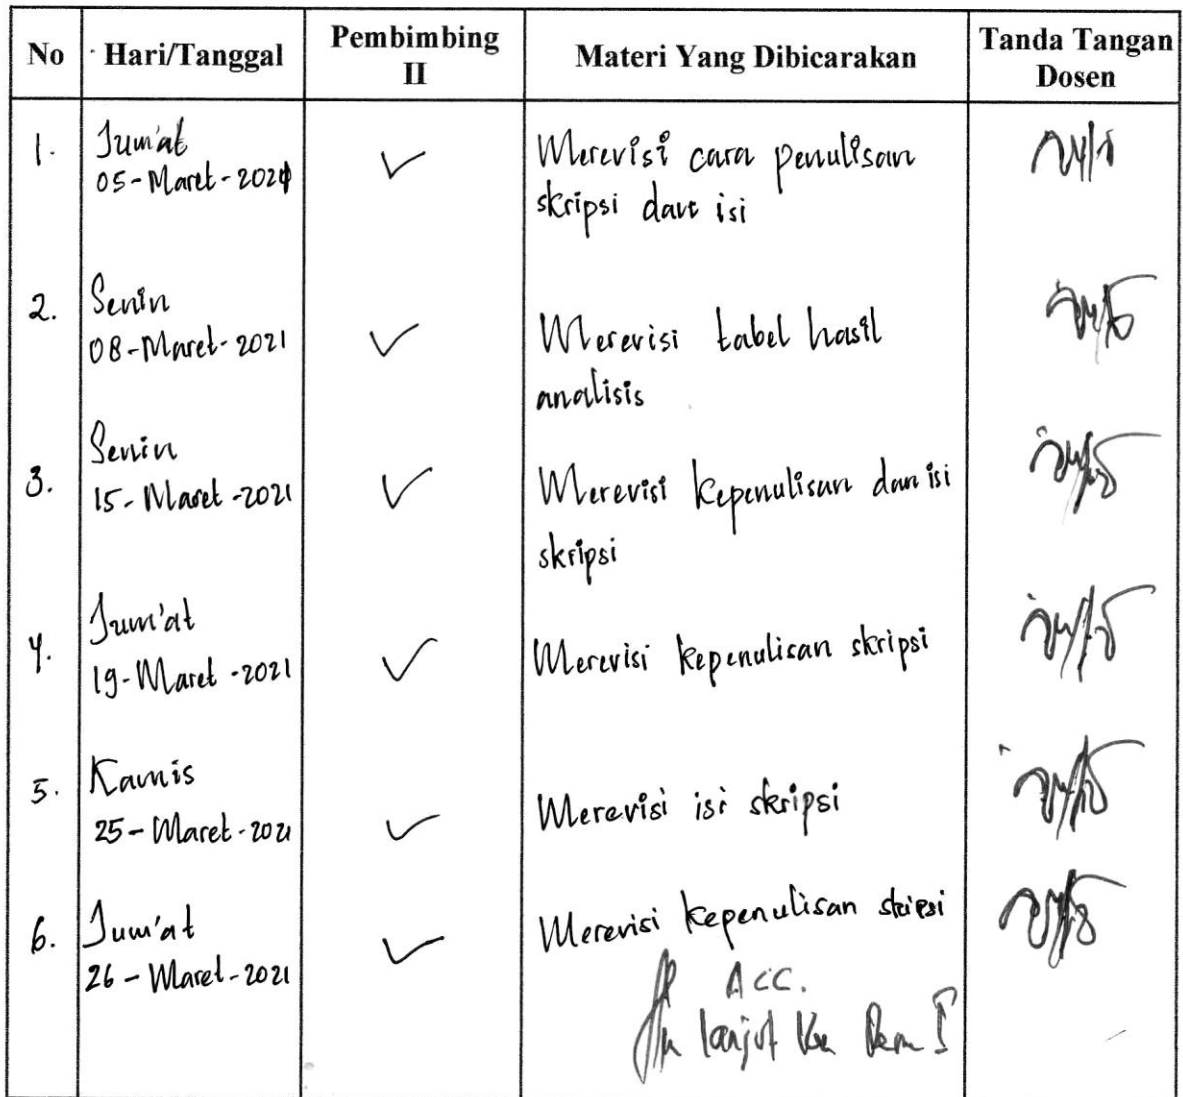 No Hari/Tanggal Pembimbing II Materi Yang Dibicarakan Tanda Tangan Dosen
1. Jum'at
05-Maret-2021
✓ Merevisi cara penulisan
skripsi dan isi
2. Senin
08-Maret-2021
✓ Merevisi tabel hasil
analisis
3. Senin
15-Maret-2021
✓ Merevisi kepenulisan dan isi
skripsi
4. Jum'at
19-Maret-2021
✓ Merevisi kepenulisan skripsi
5. Kamis
25-Maret-2021
✓ Merevisi isi skripsi
6. Jum'at
26-Maret-2021
✓ Merevisi kepenulisan skripsi
ACC.
lanjut ke Pem I